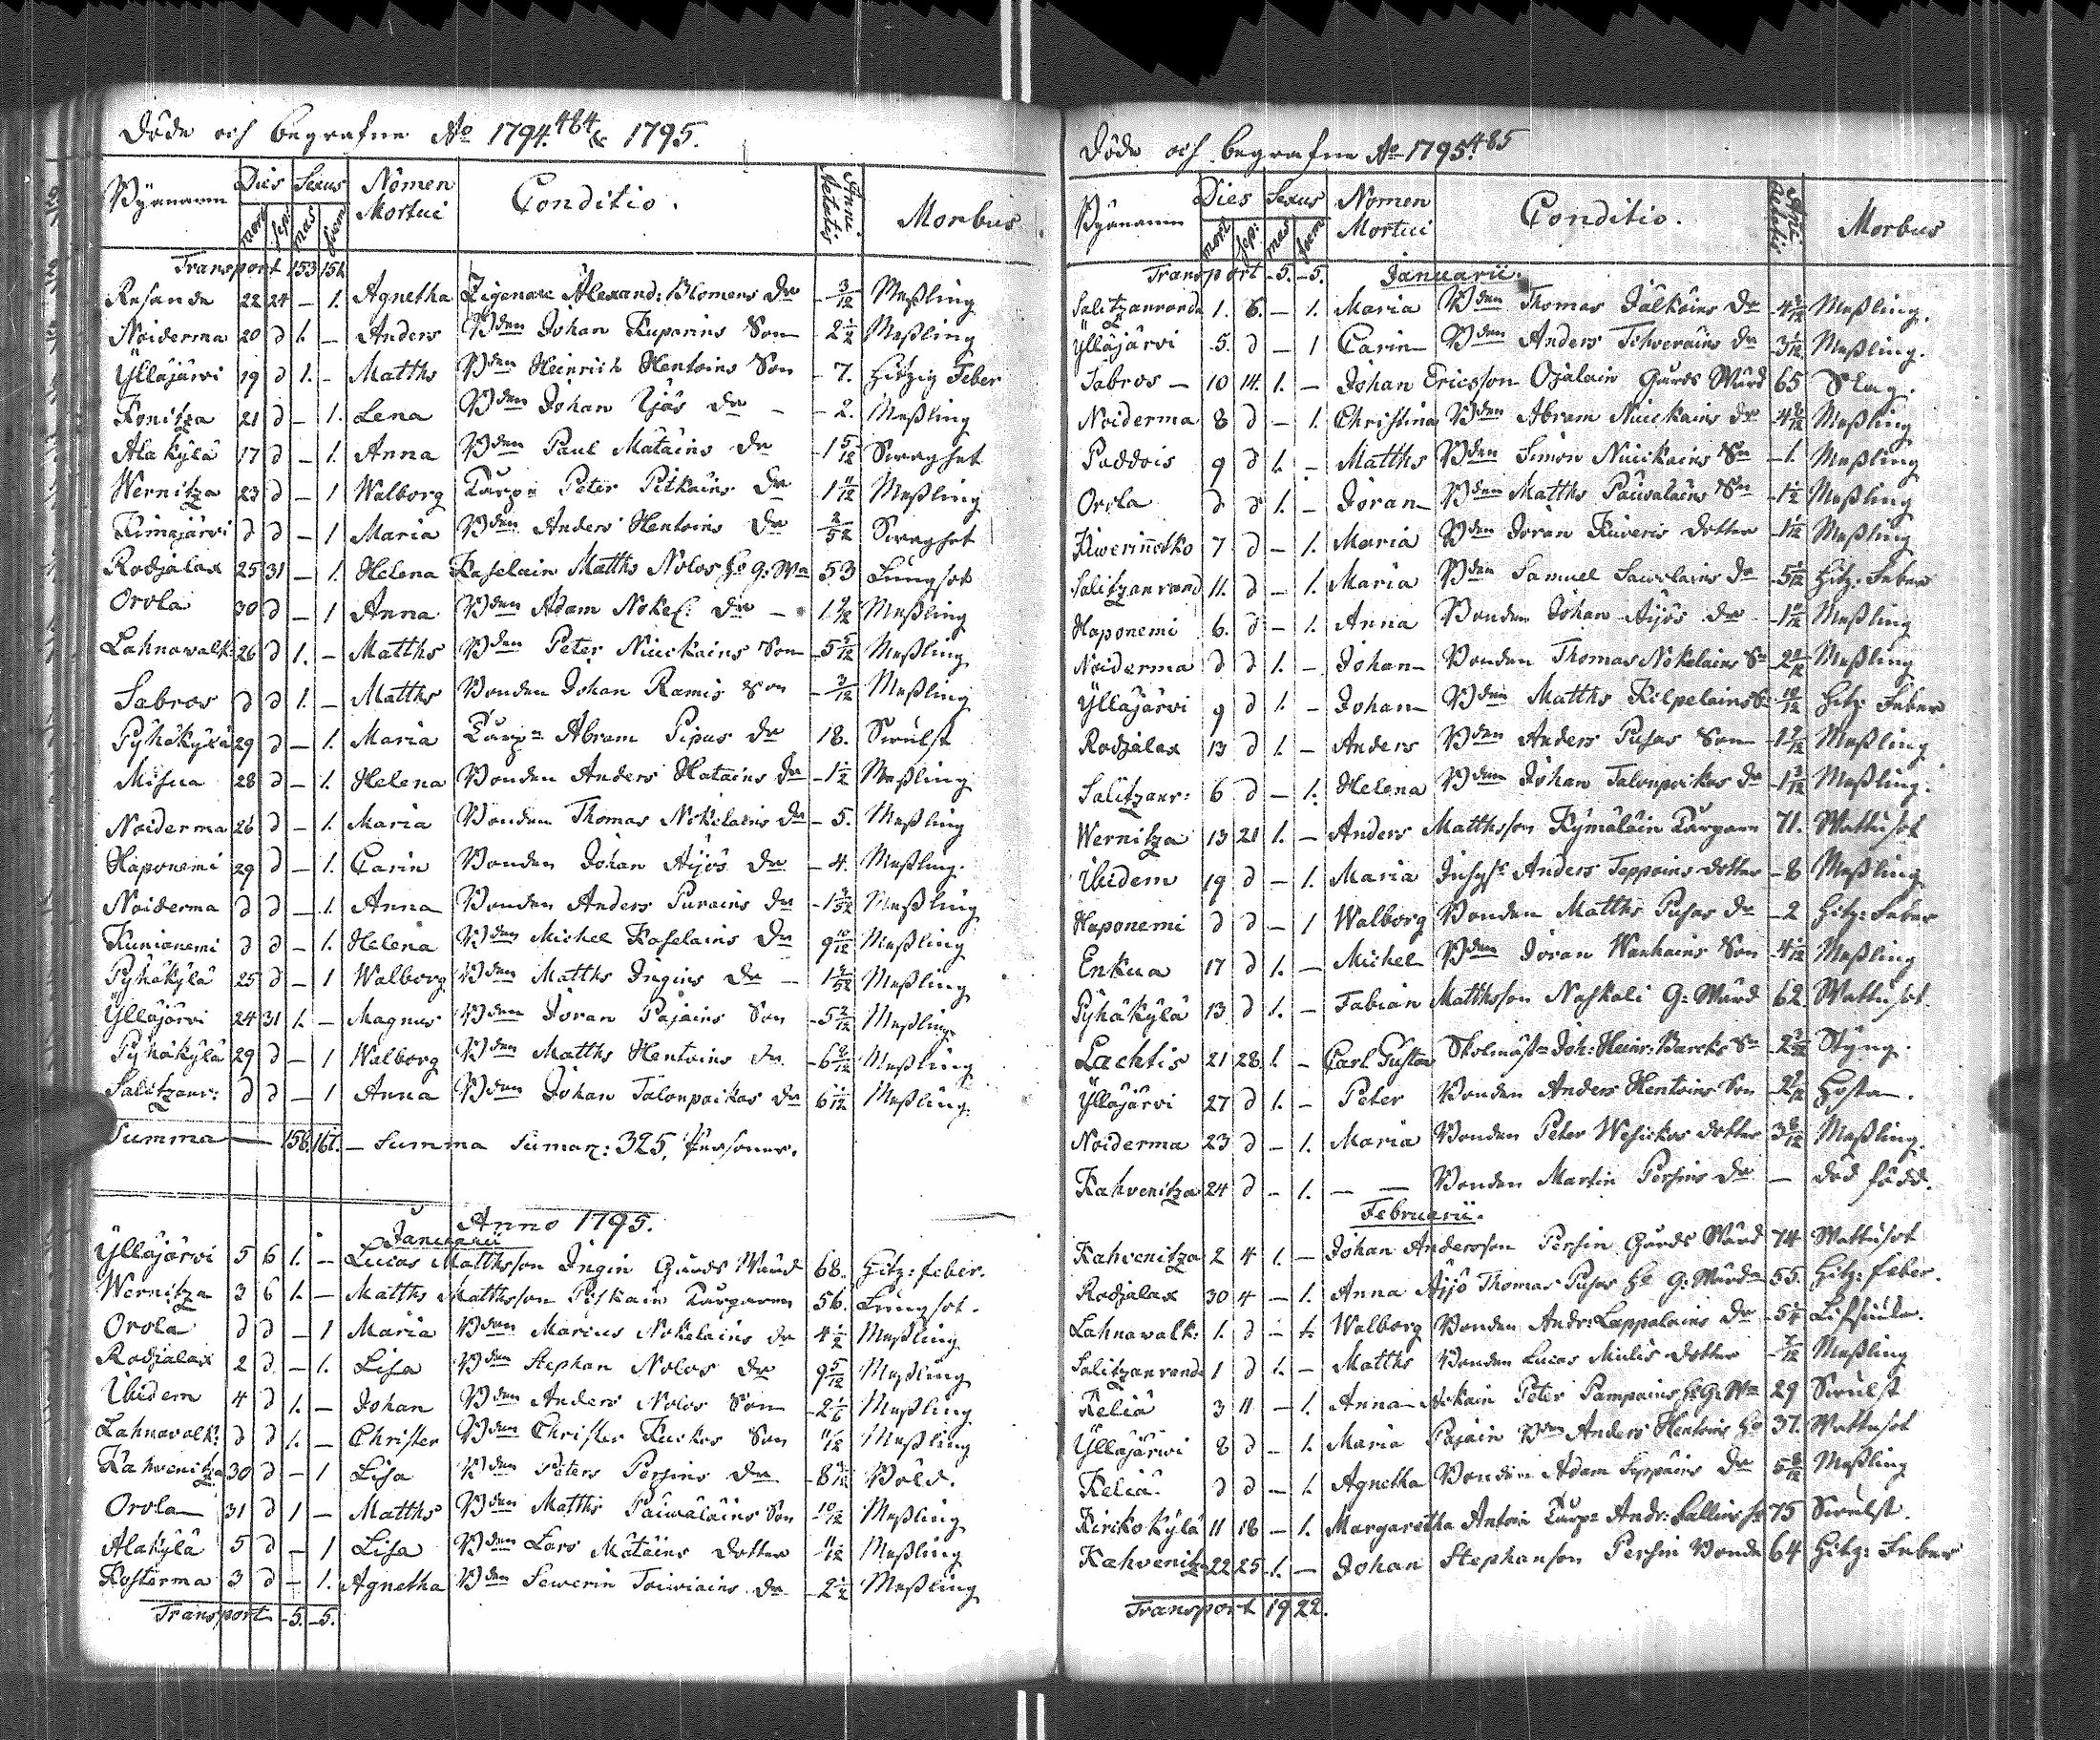 Döde och begrafne Ao 1794. & 1795.
484
Byarnam Dies Sexus Nomen Mortui Conditio. Anni Aetatis Morbus
mort sep: mas foem
Transport 153 151.
Resande 22 24 – 1. Agnetha Zigenare Alexand: Blomens dr 3/12 Meßling
Noiderma 20 d 1. – Anders Bden Johan Kuparins Son 2 1/2 Meßling
Ylläjärvi 19 d 1. – Matths Bden Heinrich Hentoins Son 7. Hitzig Feber
Konitza 21 d – 1. Lena Bden Johan Äjös dr – 2. Meßling
Alakylä 17 d – 1. Anna Bden Paul Mätäins dr 1 5/12 Swaghet
Wernitza 23 d – 1 Walborg Torpn Peter Pitkäins dr 1 11/12 Meßling
Kimajärvi d d – 1 Maria Bden Anders Hentoins dr 2/52 Swaghet
Rodjalax 25 31 – 1. Helena Kaselain Matths Nolos Ho G: Wn 53 Lungsot
Orola 30 d – 1 Anna Bden Adam Nokel: dr – 1 1/2 Meßling
Lahnavalk: 26 d 1. – Matths Bden Peter Niuckains Son 5 5/12 Meßling
Sabros d d 1. – Matths Bonden Johan Ramis Son 3/12 Meßling
Pyhäkylä 29 d – 1. Maria Torpn Abram Pipus dr 18. Swulst
Misua 28 d – 1. Helena Bonden Anders Hatains dr 1 1/2 Meßling
Noiderma 26 d – 1. Maria Bonden Thomas Nokelains dr 5. Meßling
Haponemi 29 d – 1. Carin Bonden Johan Äijös dr – 4. Meßling.
Noiderma d d – 1. Anna Bonden Anders Purains dr Meßling
Kunianemi d d – 1. Helena Bden Michel Kaselains dr 9 10/12 Meßling
Pyhäkylä 25 d – 1 Walborg Bden Matths Ingins dr – Meßling
Ylläjärvi 24 31 1. – Magnus Bden Jöran Pajains Son 5 2/12 Meßling
Pyhäkylä 29 d – 1 Walborg Bden Matths Hentoins dr 6 Meßling
Salitzanr: d d – 1 Anna Bden Johan Talonpoikas dr 6 1/12 Meßling
Summa — 158. 167. – Summa Sumar: 325. Personer.
Anno 1795.
Januarii
Ylläjärvi 5 6 1. – Lucas Matthsson Ingin Gårds Wärd 68. Hitz: feber.
Wernitza 3 6 1. – Matths Matthsson Pitkain Torparen 56. Lungsot.
Orola d d – 1 Maria Bden Marcus Nokelains dr 4 1/2 Meßling
Rodjalax 2 d – 1. Lisa Bden Stephan Nolos dr 9 5/12 Meßling
Ibidem 4 d 1. – Johan Bden Anders Nolos Son 2 1/6 Meßling
Lahnavalk: d d 1. – Christer Bden Christer Kuckos Son 11/12 Meßling
Kahvenitza 30 d – 1 Lisa Bden Peters Persins dr 8 Bold.
Orola 31 d 1 – Matths Bden Matths Päiwäläins Son 10/12 Meßling
Alakylä 5 d – 1 Lisa Bden Lars Mätäins dotter 11/12 Meßling
Kosterma 3 d – 1. Agnetha Bden Sewerin Toiwiains dr 2 1/2 Meßling
Transport 5. 5.
Döde och begrafne Ao 1795.
485
Byarnam Dies Sexus Nomen Mortui Conditio. Anni Aetatis Morbus
mort sep: mas foem
Transport 5. 5. Januarii.
Salitzanranda 1. 6. – 1. Maria Bden Thomas Jälköins dr 4 Meßling.
Ylläjärvi 5. d – 1 Carin Bden Anders Tihveräins dr 3 1/12 Meßling.
Sabros – 10 14. 1. – Johan Ericsson Ojalain Gårds Wärd 65 Slag.
Noiderma 8 d – 1. Christina Bden Abram Niuckains dr 4 Meßling
Paddois 9 d 1. – Matths Bden Simon Niuckains Sn 1. Meßling
Orola d d 1. – Jöran Bden Matths Päiwäläins Sn 1 1/2 Meßling
Kiwerinesko 7 d – 1. Maria Bden Jöran Kiweris dotter Meßling
Salitzanrand 11. d – 1. Maria Bden Samuel Sawolains dr 5 Hitz: Feber
Haponemi 6. d – 1. Anna Bonden Johan Äijös dr Meßling
Noiderma d d 1. – Johan Bonden Thomas Nokelains Sn 2 Meßling
Ylläjärvi 9 d 1. – Johan Bden Matths Kilpelains Sn 10/12 Hitz Feber
Rodjalax 13 d 1. – Anders Bden Anders Pusas Son Meßling
Salitzanr: 6 d – 1. Helena Bden Johan Talonpoikas dr 1 3/12 Meßling.
Wernitza 13 21 1. – Anders Matthsson Kymäläin Torparen 71. Wattusot
Ibidem 19 d – 1. Maria Inhyst Anders Teppoins dotter 8 Meßling
Haponemi d d – 1 Walborg Bonden Matths Pusas dr 2 Hitz: Feber
Enkua 17 d 1. – Michel Bden Jöran Wanhains Son 4 Meßling
Pyhäkylä 13 d 1. – Fabian Matthsson Naskali G: Wärd 62 Wattusot
Lachtis 21 28 1. – Carl Gustav Skolmästn Joh: Heinr: Barcks Sn 2 Styng.
Ylläjärvi 27 d 1. – Peter Bonden Anders Hentoins Son 2 Hosta.
Noiderma 23 d – 1. Maria Bonden Peter Wesickos dotter 3 Meßling.
Kahvenitza 24 d – 1. — — Bonden Martin Persins dr – död född.
Februarii.
Kahvenitza 2 4 1. – Johan Andersson Persin Gårds Wärd 74 Wattusot
Rodjalax 30 4 – 1. Anna Äijö Thomas Pusas Ho G: Wärdn 55. Hitz: feber.
Lahnavalk: 1. d – 1. Walborg Bonden Andr: Lappalains dr
Salitzanranda 1 d 1. – Matths Bonden Lucas Miulis dotter Meßling
Keliä 3 11 – 1. Anna Askain Peter Pampains Ho G: Wn 29 Swulst
Ylläjärvi 8 d – 1. Maria Pajain Bden Anders Hentoins Ho 37. Wattusot
Keliä. d d – 1. Agnetha Bonden Adam Seppäins dr 5 Meßling
Kirikokylä 11 18 – 1. Margaretha Antoin Torpn Andr: Lallins 75 Swulst.
Kahvenitza 22 25 1. – Johan Stephanson Persin Bonde 64 Hitz: Feber
Transport 19 22.